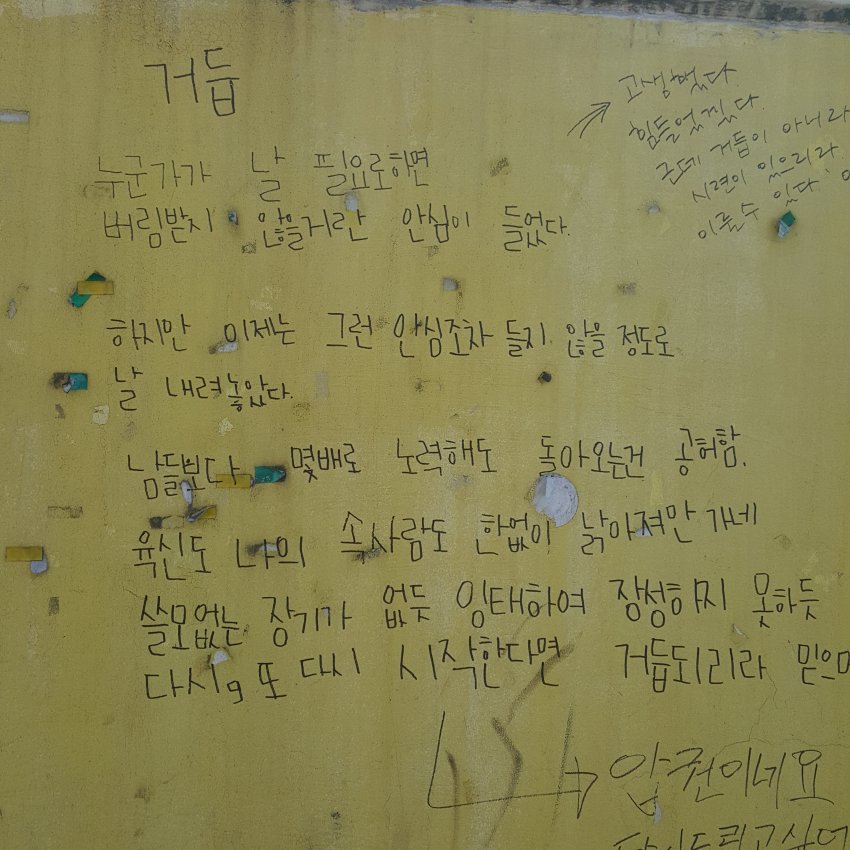 거듭
누군가가 날 필요로하면
버림받지 않을거란 안심이 들었다.
하지만 이제는 그런 안심조차 들지 않을 정도로
날 내려놓았다.
남들보다 몇배로 노력해도 돌아오는건 공허함.
육신도 나의 속사람도 한없이 낡아져만 가네
쓸모없는 장기가 없듯 잉태하여 장성하지 못하듯
다시, 또 다시 시작한다면 거듭되리라 믿으며
고생했다
힘들었겠다.
근데 거듭이 아니라
시련이 있으리라
이룰수 있다
압권이네요